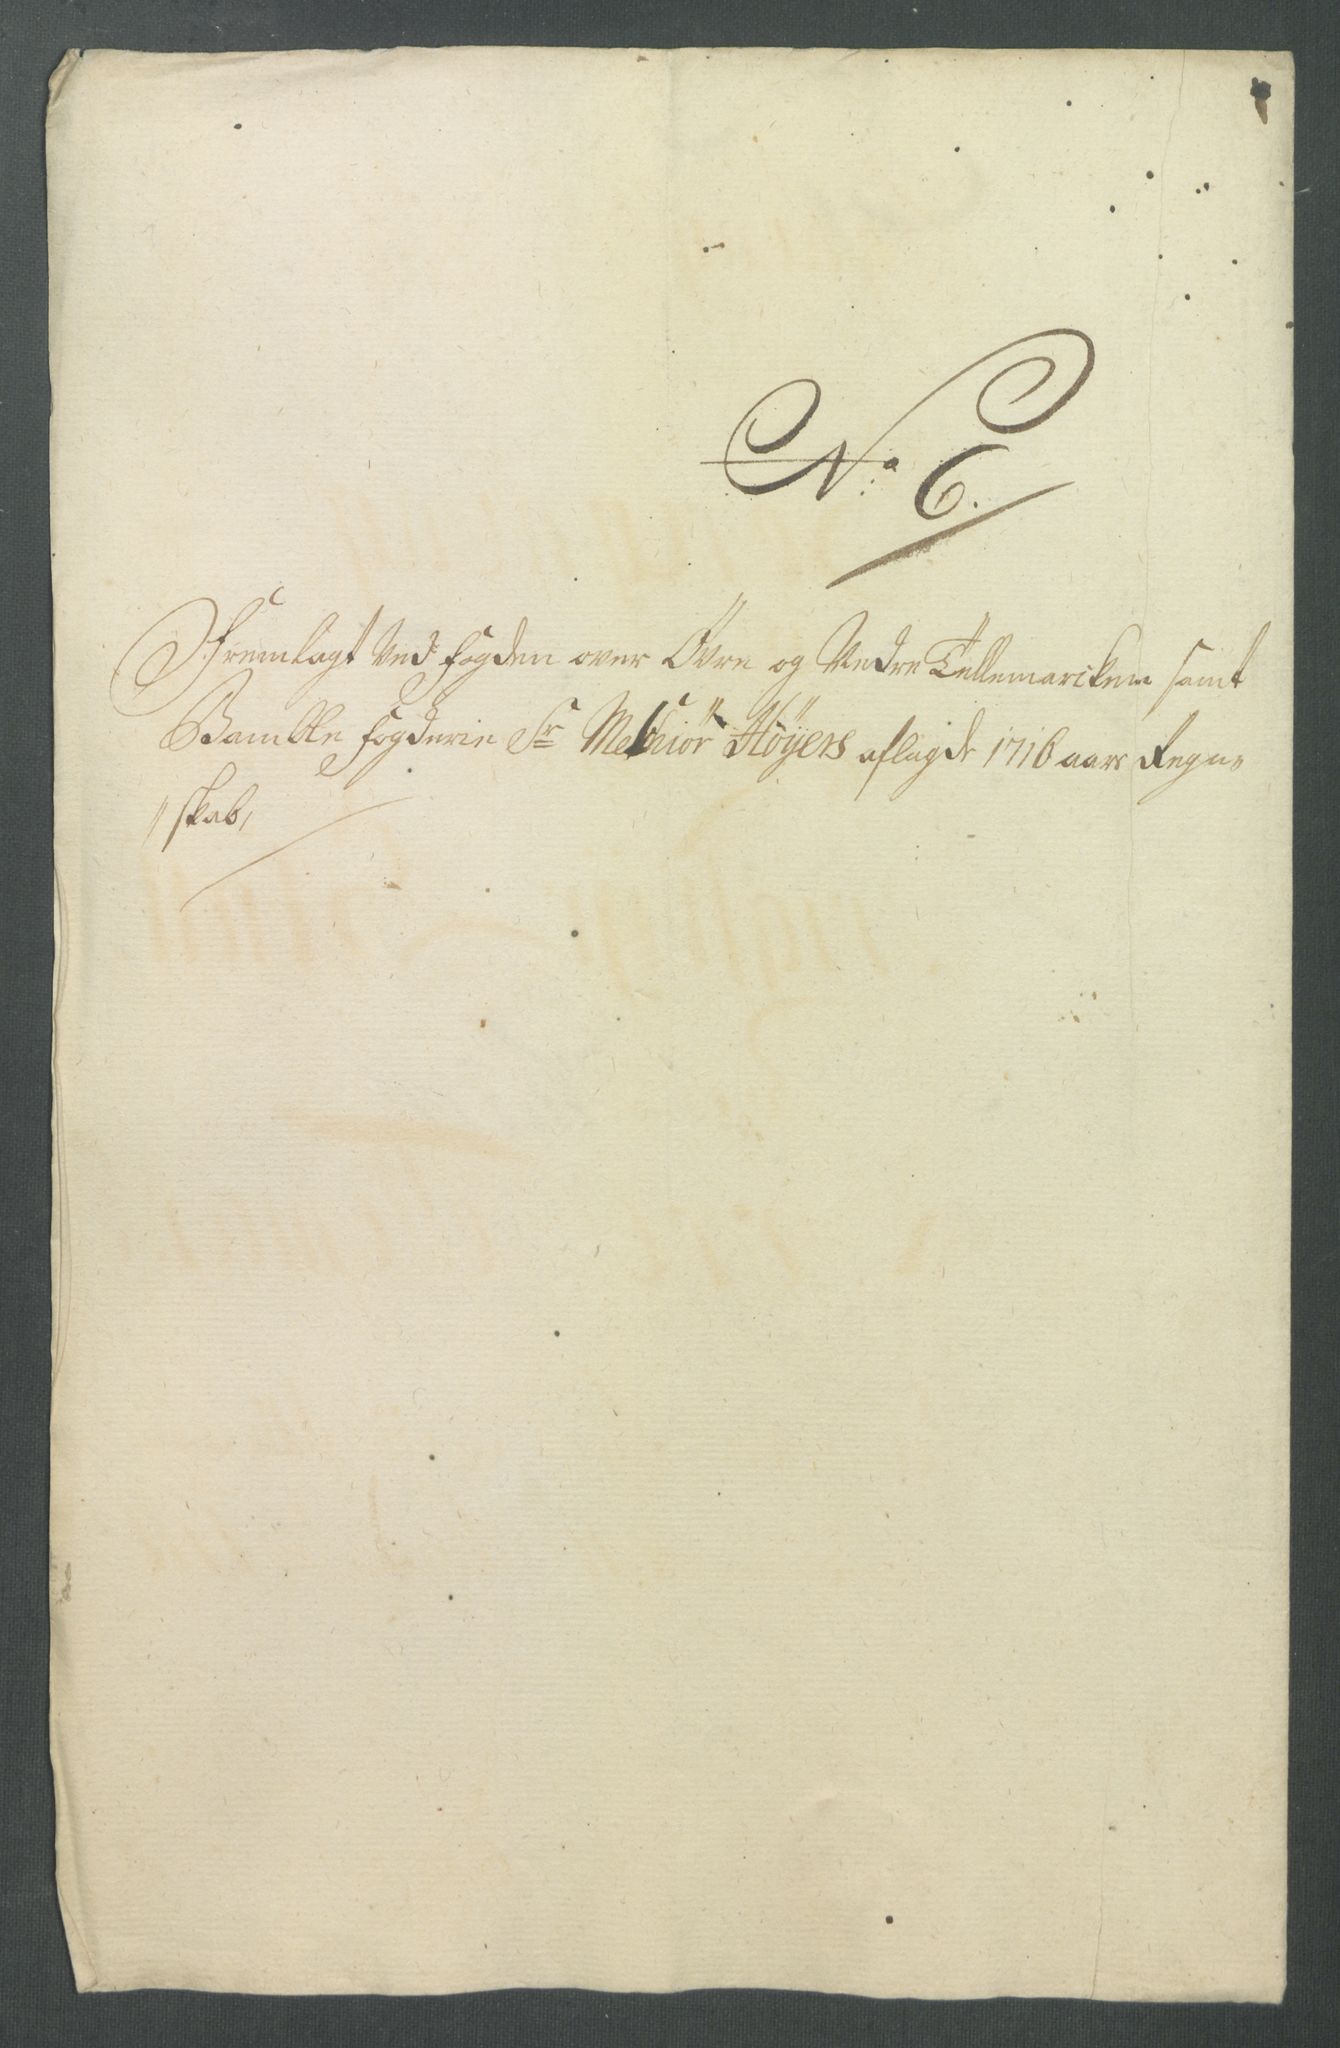 No: 6.
Fremlagt Ved fogden over Övre og Nedre Tellemarcken samt
Bamble fogderie Sr Melchiör Höyers aflagde 1716 aars Regn=
"skab,